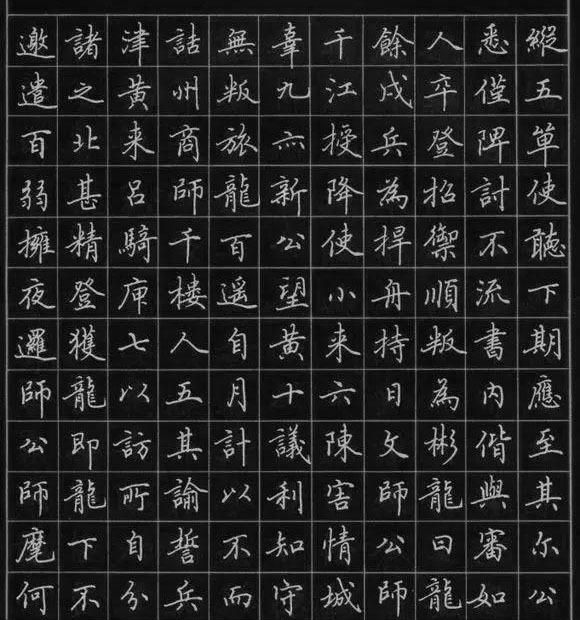 邀諸津詰無辜千餘人悉縱
遣之黃州叛九江戍卒僅五
百北来商旅亦授兵登陴單
弱甚呂師龍新降為招討使
擁精騎千百公使捍禦不聽
夜登庾樓遥望小舟順流下
邏獲七人自黃来持叛書期
師龍以五月十六日為内應
公即訪其計議陳文彬偕至
師龍所諭以利害師龍與其
麾下自誓不知情公曰審尔
何不分兵而守城師龍如公